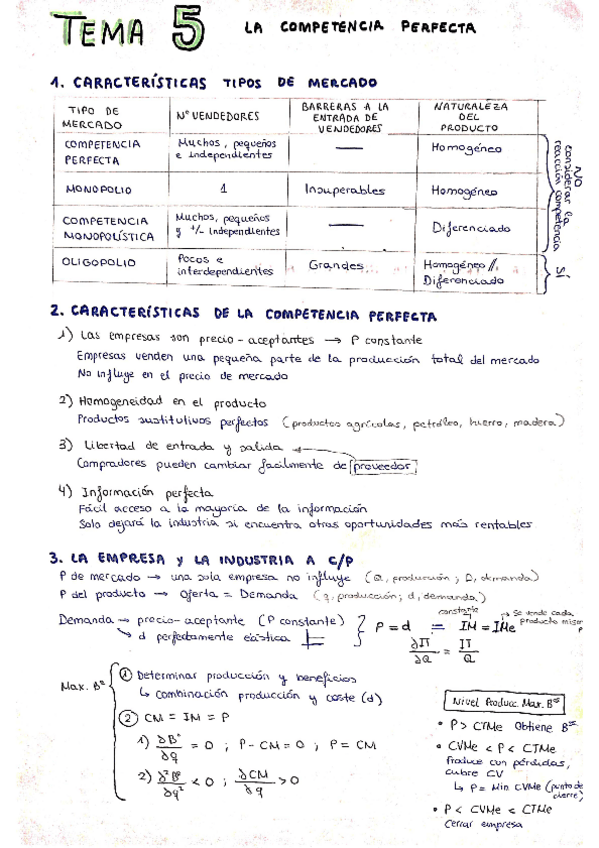 TEMA 5 LA COMPETENCIA PERFECTA
1. CARACTERÍSTICAS TIPOS DE MERCADO
TIPO DE MERCADO | Nº VENDEDORES | BARRERAS A LA ENTRADA DE VENDEDORES | NATURALEZA DEL PRODUCTO
COMPETENCIA PERFECTA | Muchos, pequeños e independientes | — | Homogéneo
MONOPOLIO | 1 | Insuperables | Homogéneo
COMPETENCIA MONOPOLÍSTICA | Muchos, pequeños y +/- independientes | — | Diferenciado
OLIGOPOLIO | Pocos e interdependientes | Grandes | Homogéneo // Diferenciado
NO considerar la reacción competencia
SÍ
2. CARACTERÍSTICAS DE LA COMPETENCIA PERFECTA
1) Las empresas son precio-aceptantes → P constante
Empresas venden una pequeña parte de la producción total del mercado
No influye en el precio de mercado
2) Homogeneidad en el producto
Productos sustitutivos perfectos (productos agrícolas, petróleo, hierro, madera)
3) Libertad de entrada y salida ←
Compradores pueden cambiar fácilmente de proveedor
4) Información perfecta
Fácil acceso a la mayoría de la información
Solo dejará la industria si encuentra otras oportunidades más rentables
3. LA EMPRESA y LA INDUSTRIA A C/P
P de mercado → una sola empresa no influye (Q, producción; D, demanda)
P del producto → Oferta = Demanda (q, producción; d, demanda)
Demanda → precio-aceptante (P constante)
↳ d perfectamente elástica
P = d = IM = IMe
constante
→ Se vende cada producto mismo P
∂IT/∂Q = IT/Q
Max. Bº
① Determinar producción y beneficios
↳ combinación producción y coste (d)
② CM = IM = P
1) ∂Bº/∂q = 0 ; P - CM = 0 ; P = CM
2) ∂²Bº/∂q² < 0 ; ∂CM/∂q > 0
Nivel Producc. Max. Bºs
• P > CTMe Obtiene Bºs
• CVMe < P < CTMe
Produce con pérdidas, cubre CV
↳ P = Min CVMe (punto de cierre)
• P < CVMe < CTMe
Cerrar empresa